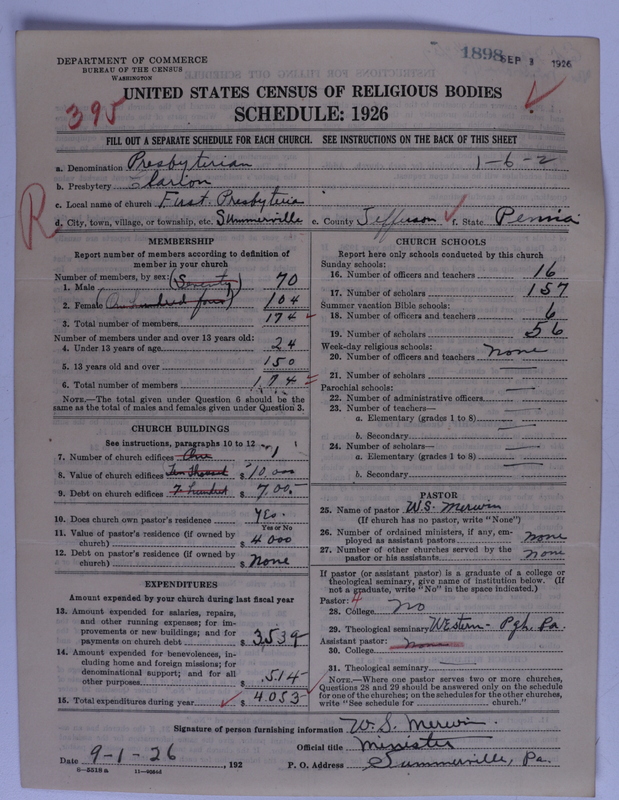 1898 SEP 3 1926
DEPARTMENT OF COMMERCE
BUREAU OF THE CENSUS
WASHINGTON
UNITED STATES CENSUS OF RELIGIOUS BODIES
395
SCHEDULE: 1926
FILL OUT A SEPARATE SCHEDULE FOR EACH CHURCH. SEE INSTRUCTIONS ON THE BACK OF THIS SHEET
a. Denomination Presbyterian 1-6-2
b. Presbytery Clarion
c. Local name of church First Presbyteria
R
d. City, town, village, or township, etc. Summerville e. County Jefferson f. State Penna
MEMBERSHIP
Report number of members according to definition of
member in your church
Number of members, by sex:
1. Male (Seventy) 70
2. Female (One hundred four) 104
3. Total number of members 174
Number of members under and over 13 years old:
4. Under 13 years of age 24
5. 13 years old and over 150
6. Total number of members 174
NOTE.—The total given under Question 6 should be the
same as the total of males and females given under Question 3.
CHURCH BUILDINGS
See instructions, paragraphs 10 to 12
7. Number of church edifices One 1
8. Value of church edifices Ten Thousand $10,000
9. Debt on church edifices 7 hundred $700.-
10. Does church own pastor's residence Yes.
Yes or No
11. Value of pastor's residence (if owned by
church) $4000
12. Debt on pastor's residence (if owned by
church) $None
EXPENDITURES
Amount expended by your church during last fiscal year
13. Amount expended for salaries, repairs,
and other running expenses; for im-
provements or new buildings; and for
payments on church debt $3539
14. Amount expended for benevolences, in-
cluding home and foreign missions; for
denominational support; and for all
other purposes 514-
15. Total expenditures during year $4053-
CHURCH SCHOOLS
Report here only schools conducted by this church
Sunday schools:
16. Number of officers and teachers 16
17. Number of scholars 157
Summer vacation Bible schools:
18. Number of officers and teachers 6
19. Number of scholars 56
Week-day religious schools:
20. Number of officers and teachers None
21. Number of scholars
Parochial schools:
22. Number of administrative officers
23. Number of teachers—
a. Elementary (grades 1 to 8)
b. Secondary
24. Number of scholars—
a. Elementary (grades 1 to 8)
b. Secondary
PASTOR
25. Name of pastor W.S. Merwin
(If church has no pastor, write "None")
26. Number of ordained ministers, if any, em-
ployed as assistant pastors None
27. Number of other churches served by the
pastor or his assistants None
If pastor (or assistant pastor) is a graduate of a college or
theological seminary, give name of institution below. (If
not a graduate, write "No" in the space indicated.)
Pastor: 4
28. College No
29. Theological seminary Western- Pgh. Pa.
Assistant pastor:
30. College None
31. Theological seminary
NOTE.—Where one pastor serves two or more churches,
Questions 28 and 29 should be answered only on the schedule
for one of the churches; on the schedules for the other churches,
write "See schedule for church."
Signature of person furnishing information W. S. Merwin.
Official title Minister
Date 9-1-26, 192 P. O. Address Summerville, Pa.